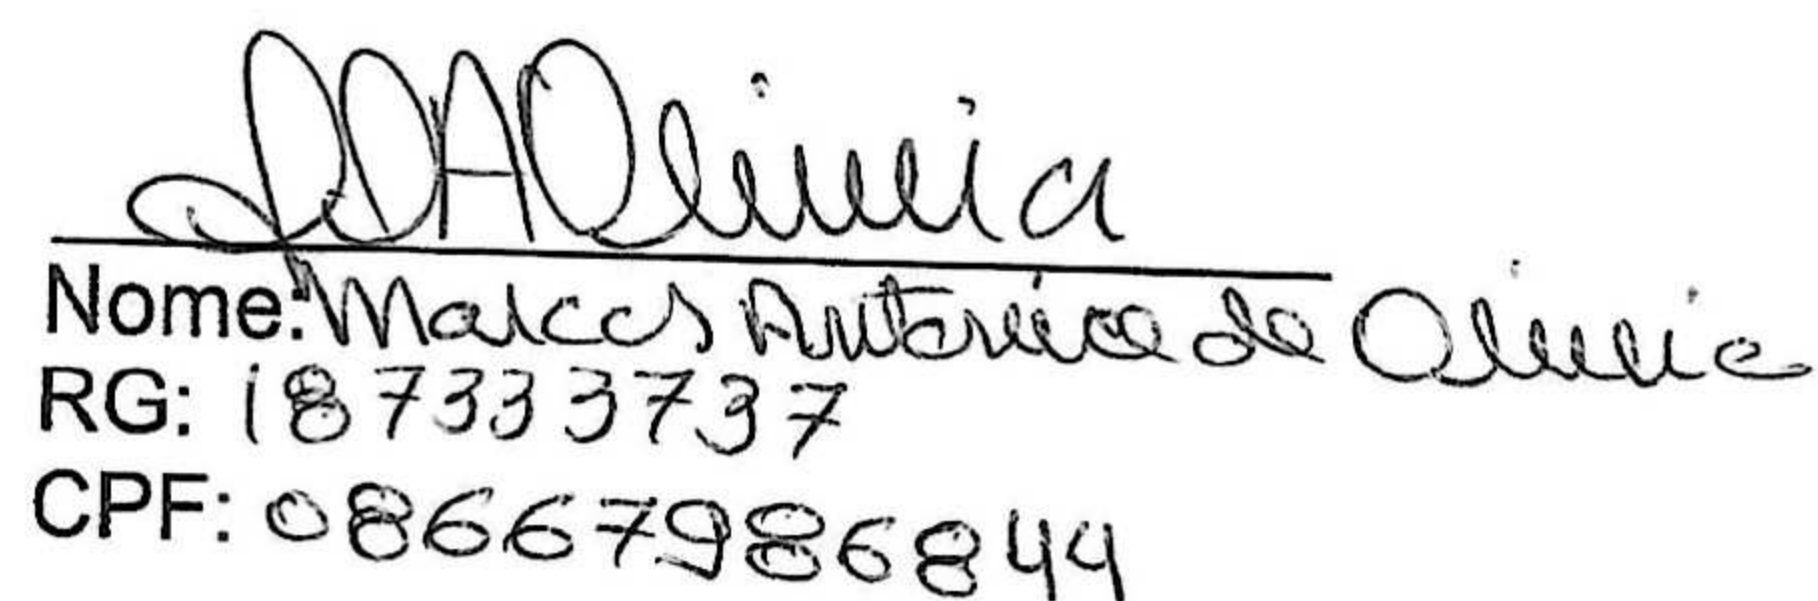 MAOliveira
Nome: Marcos Antonio de Oliveira
RG: 187333737
CPF: 08667986844